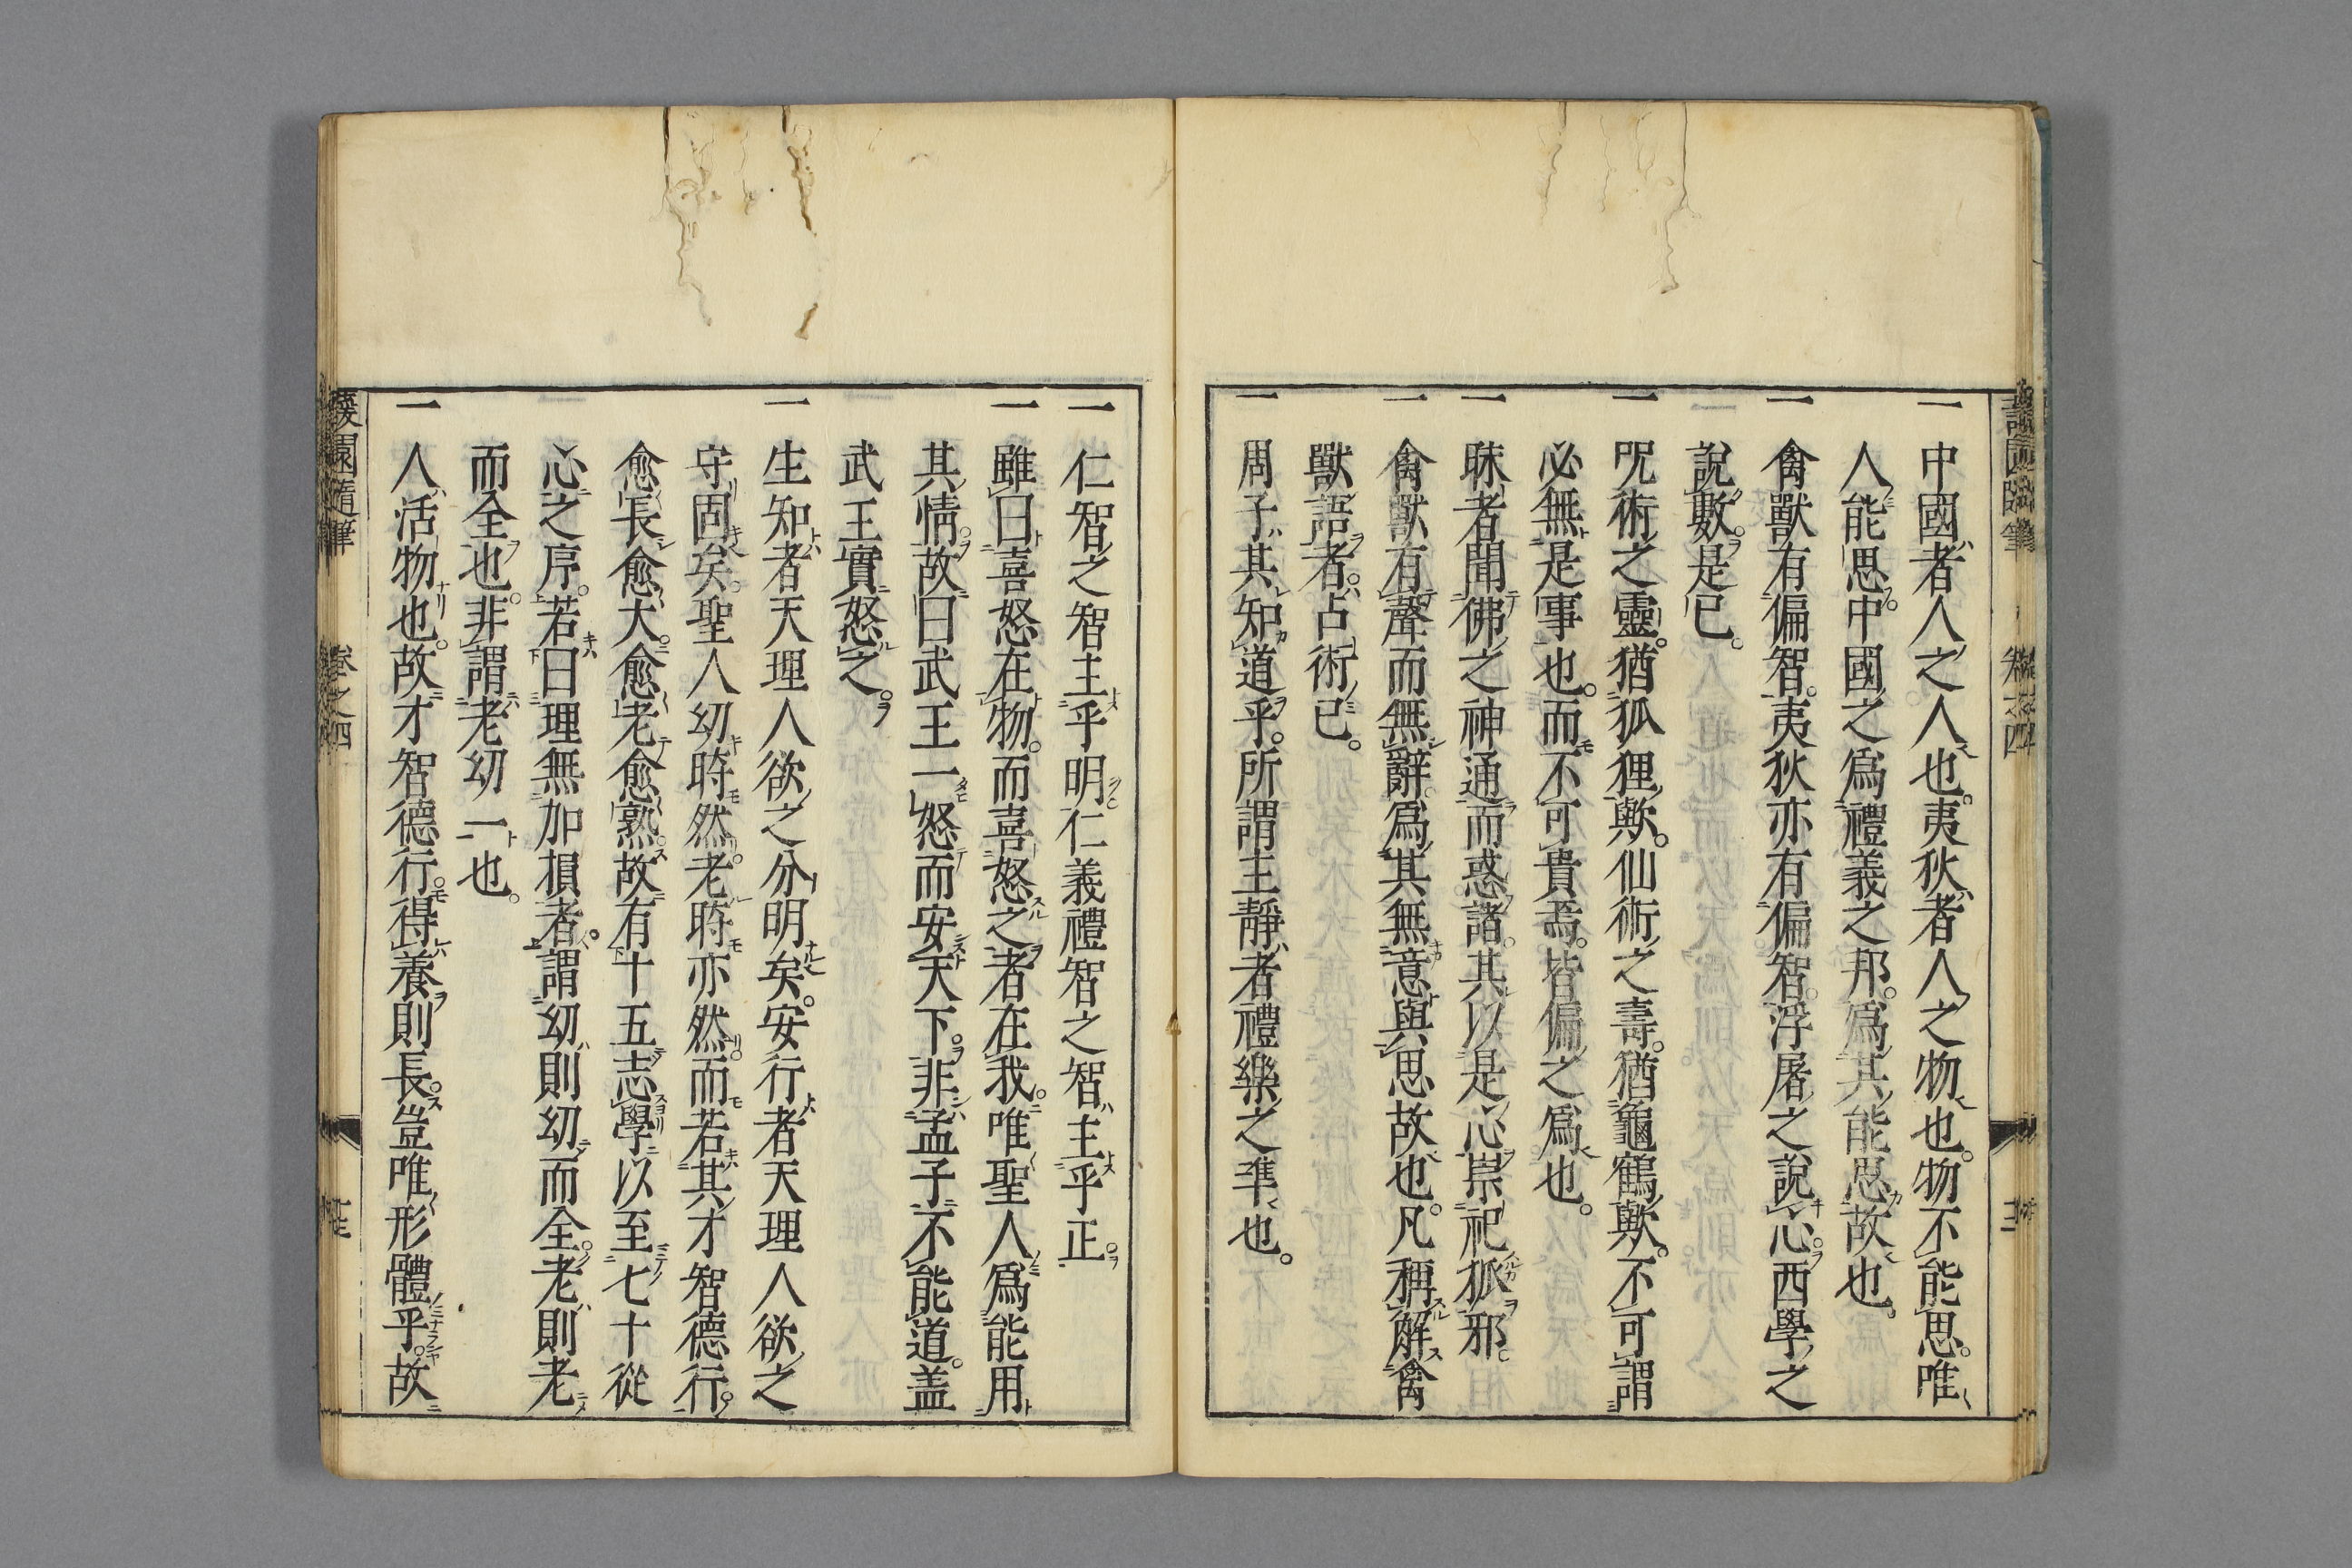 一 中國者人之人也。夷狄者人之物也。物不能思。唯
人能思。中國之爲禮義之邦。爲其能思故也。
一 禽獸有偏智。夷狄亦有偏智。浮屠之說心。西學之
說數。是已。
一 呪術之靈。猶狐狸歟。仙術之壽。猶龜鶴歟。不可謂
必無是事也。而不可貴焉。皆偏之爲也。
一 昧者聞佛之神通而惑諸。其以是心祟祀狐邪
一 禽獸有聲而無辭。爲其無意與思故也。凡稱解禽
獸語者。占術已。
一 周子其知道乎。所謂主靜者禮樂之準也。
一 仁智之智主乎明。仁義禮智之智主乎正。
一 雖曰喜怒在物。而喜怒之者在我。唯聖人爲能用
其情。故曰武王一怒而安天下。非孟子不能道。盖
武王實怒之。
一 生知者天理人欲之分明矣。安行者天理人欲之
守固矣。聖人幼時然。老時亦然。而若其才智德行。
愈長愈大。愈老愈熟。故有十五志學以至七十從
心之序。若曰理無加損者。謂幼則幼而全。老則老
而全也。非謂老幼一也。
一 人活物也。故才智德行。得養則長。豈唯形體乎。故
蘐園隨筆 卷之四